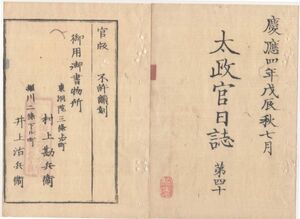 慶應四年戊辰秋七月
太政官日誌 第四十
官版 不許飜刻
御用御書物所
東洞院三條上ル町
村上勘兵衞
堀川二條下ル町
井上治兵衞